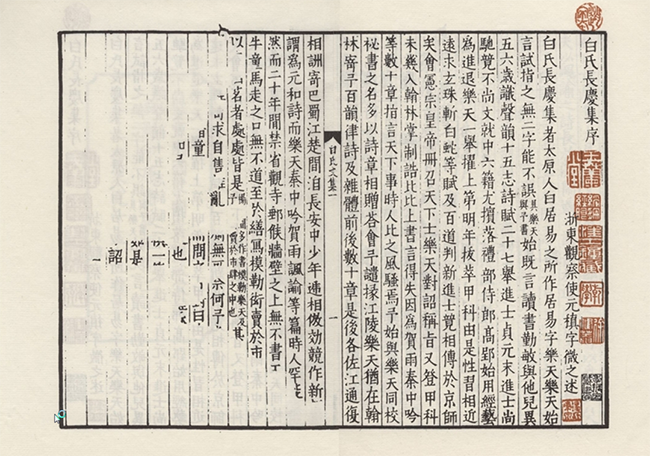 白氏長慶集序
浙東觀察使元稹字微之述
白氏長慶集者太原人白居易之所作居易字樂天樂天始
言試指之無二字能不誤具樂天與予書始既言讀書勤敏與他兒異
五六歲識聲韻十五志詩賦二十七舉進士貞元末進士尚
馳競不尚文就中六籍尤擯落禮部侍郎高郢始用經藝
為進退樂天一舉擢上第明年拔萃甲科由是性習相近
遠求玄珠斬白蛇等賦及百道判新進士競相傳於京師
矣會憲宗皇帝冊召天下士樂天對詔稱旨又登甲科
未幾入翰林掌制誥比比上書言得失因為賀雨秦中吟
等數十章指言天下事時人比之風騷焉予始與樂天同校
秘書之名多以詩章相贈荅會予譴掾江陵樂天猶在翰
林寄予百韻律詩及雜體前後數十章是後各佐江通復
白氏文集一
相詶寄巴蜀江楚間洎長安中少年遞相倣効競作新
謂為元和詩而樂天秦中吟賀雨諷諭等篇時人罕
然而二十年間禁省觀寺郵候牆壁之上無不書
牛童馬走之口無不道至於繕寫模勒衒賣於市
以 茗者處處皆是 多作書模勒樂天及 賣於市肆之中也
求自售 亂 無 於何予
童 問
也
是
詔
一